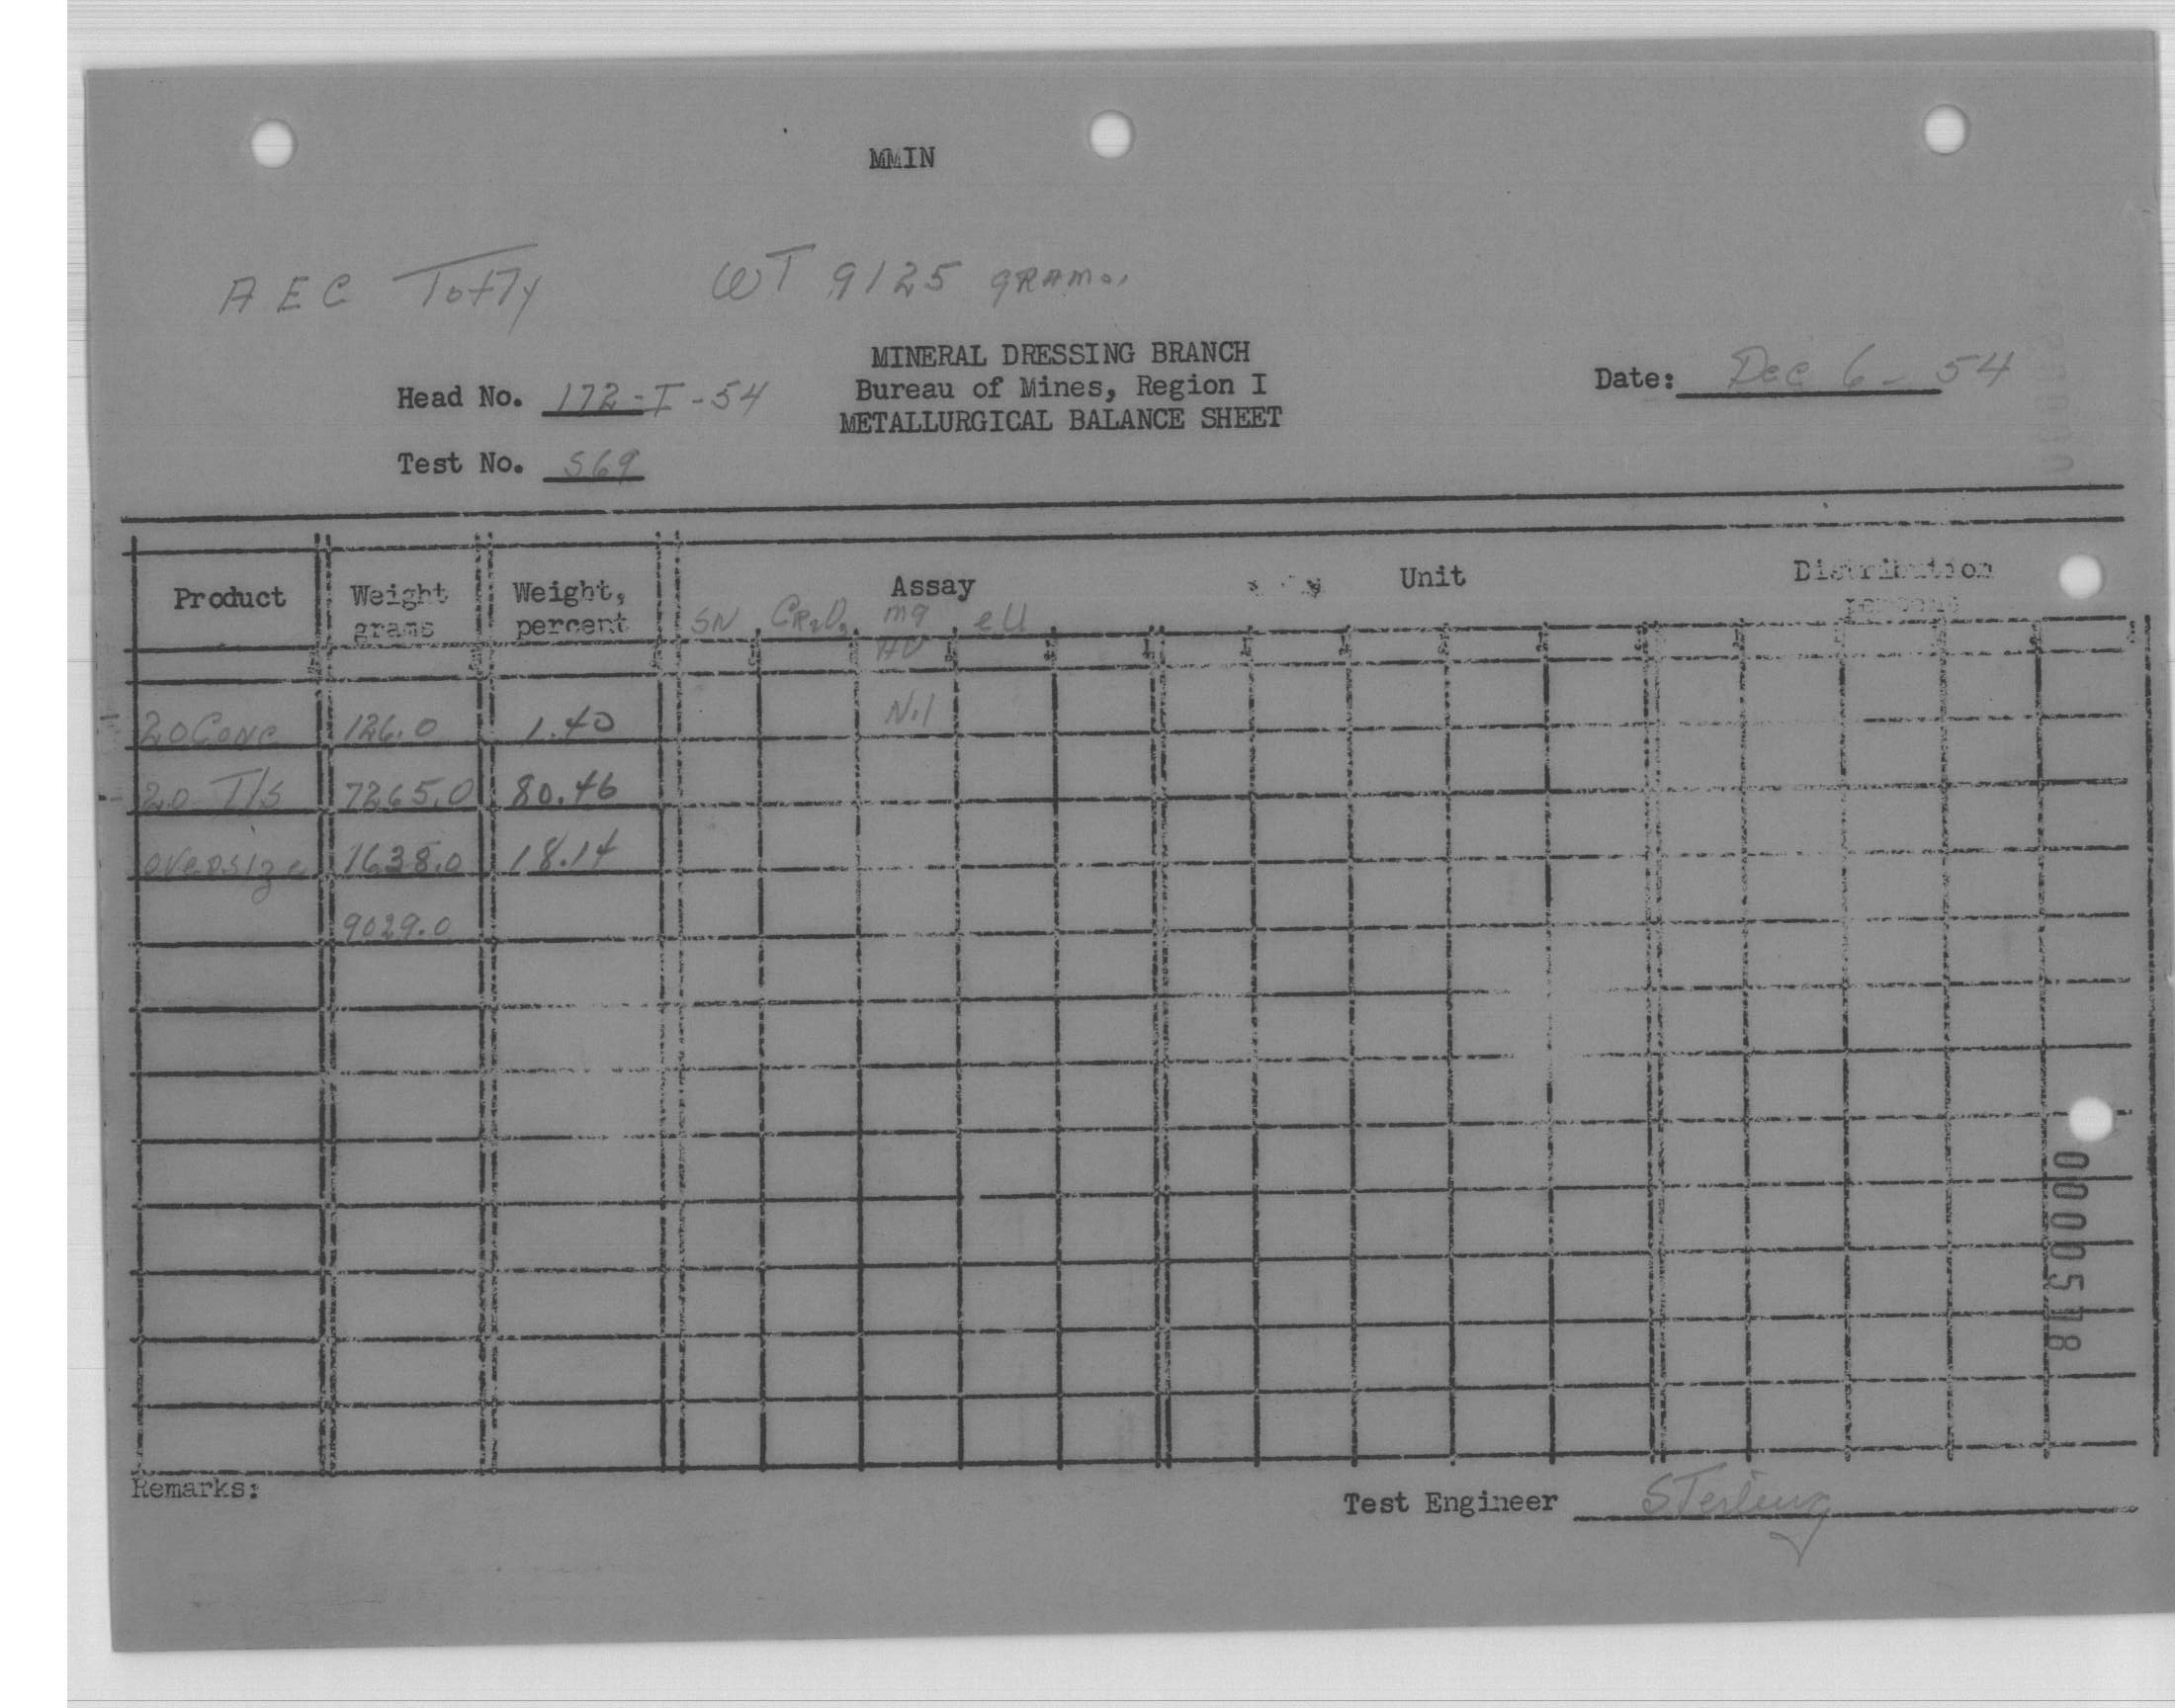 MMIN
AEC Tofty WT 9125 grams.
MINERAL DRESSING BRANCH
Head No. 172-I-54 Bureau of Mines, Region I Date: Dec 6-54
METALLURGICAL BALANCE SHEET
Test No. S69
Product Weight grams Weight, percent Assay Unit Distribution percent
SN CR2O3 mg AU eU
20 Conc 126.0 1.40 Nil
20 T/S 7265.0 80.46
oversize 1638.0 18.14
9029.0
0000518
Remarks: Test Engineer Sterling